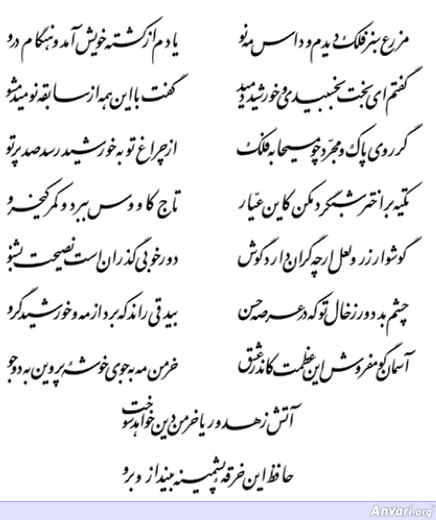 مزرع سبز فلک دیدم و داس مه نو
یادم از کشته خویش آمد و هنگام درو
گفتم ای بخت بخسبیدی و خورشید دمید
گفت با این همه از سابقه نومید مشو
گر روی پاک و مجرد چو مسیحا به فلک
از چراغ تو به خورشید رسد صد پرتو
تکیه بر اختر شبگرد مکن کاین عیّار
تاج کاووس ببرد و کمر کیخسرو
گوشوار زر و لعل ارچه گران دارد گوش
دور خوبی گذران است نصیحت بشنو
چشم بد دور ز خال تو که در عرصه حسن
بیدقی راند که برد از مه و خورشید گرو
آسمان گو مفروش این عظمت کاندر عشق
خرمن مه به جوی خوشهٔ پروین به دو جو
آتش زهد و ریا خرمن دین خواهد سوخت
حافظ این خرقه پشمینه بینداز و برو
Anvari.org